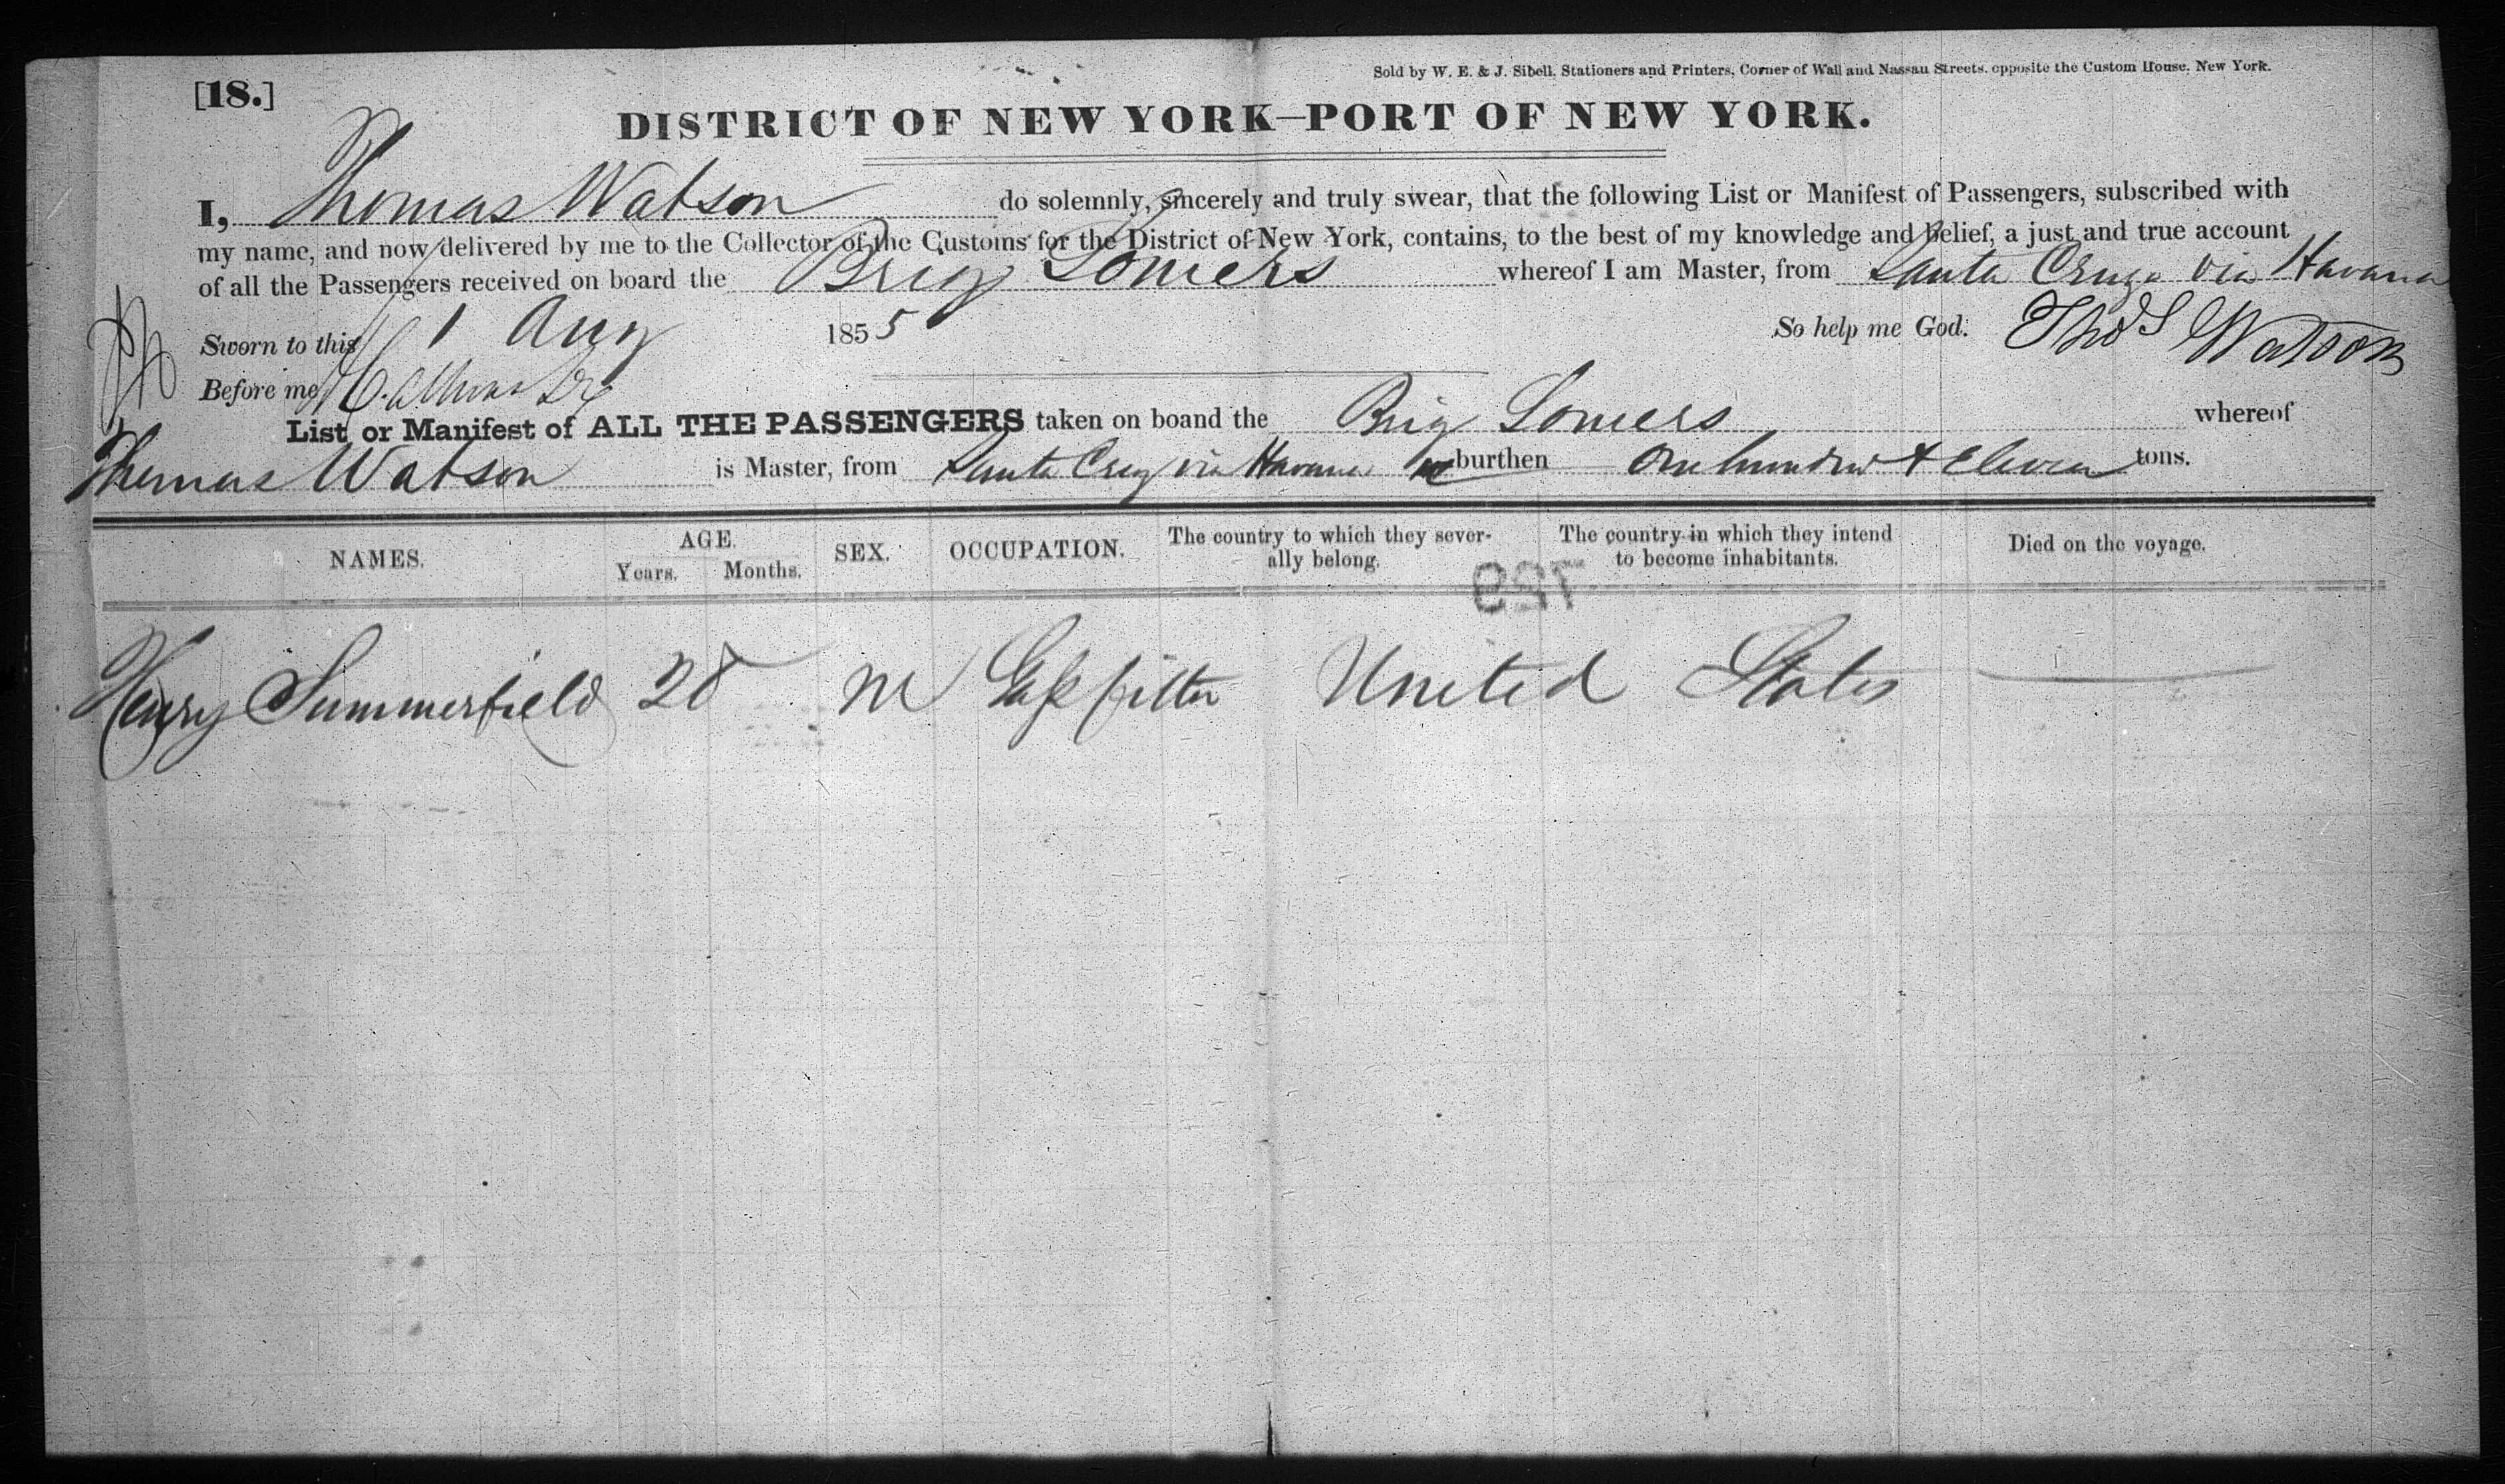 [18.]
Sold by W. E. & J. Sibell, Stationers and Printers, Corner of Wall and Nassau Streets, opposite the Custom House, New York.
DISTRICT OF NEW YORK—PORT OF NEW YORK.
I, Thomas Watson do solemnly, sincerely and truly swear, that the following List or Manifest of Passengers, subscribed with
my name, and now delivered by me to the Collector of the Customs for the District of New York, contains, to the best of my knowledge and belief, a just and true account
of all the Passengers received on board the Brig Somers whereof I am Master, from Santa Cruz via Havana
Sworn to this 1 Aug 1855 So help me God. Thos Watson
Before me
List or Manifest of ALL THE PASSENGERS taken on boand the Brig Somers whereof
Thomas Watson is Master, from Santa Cruz via Havana burthen One hundred & Eleven tons.
NAMES. AGE. Years. Months. SEX. OCCUPATION. The country to which they sever-
ally belong. The country in which they intend
to become inhabitants. Died on the voyage.
Henry Summerfield 28 M Gass fitter United States